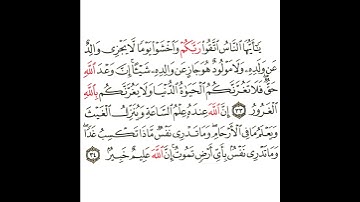 يَـٰٓأَيُّهَا ٱلنَّاسُ ٱتَّقُوا۟ رَبَّكُمْ وَٱخْشَوْا۟ يَوْمًا لَّا يَجْزِى وَالِدٌ
عَن وَلَدِهِۦ وَلَا مَوْلُودٌ هُوَ جَازٍ عَن وَالِدِهِۦ شَيْـًٔا إِنَّ وَعْدَ ٱللَّهِ
حَقٌّ فَلَا تَغُرَّنَّكُمُ ٱلْحَيَوٰةُ ٱلدُّنْيَا وَلَا يَغُرَّنَّكُم بِٱللَّهِ
ٱلْغَرُورُ ٣٣ إِنَّ ٱللَّهَ عِندَهُۥ عِلْمُ ٱلسَّاعَةِ وَيُنَزِّلُ ٱلْغَيْثَ
وَيَعْلَمُ مَا فِى ٱلْأَرْحَامِ وَمَا تَدْرِى نَفْسٌ مَّاذَا تَكْسِبُ غَدًا
وَمَا تَدْرِى نَفْسٌۢ بِأَىِّ أَرْضٍ تَمُوتُ إِنَّ ٱللَّهَ عَلِيمٌ خَبِيرٌۢ ٣٤